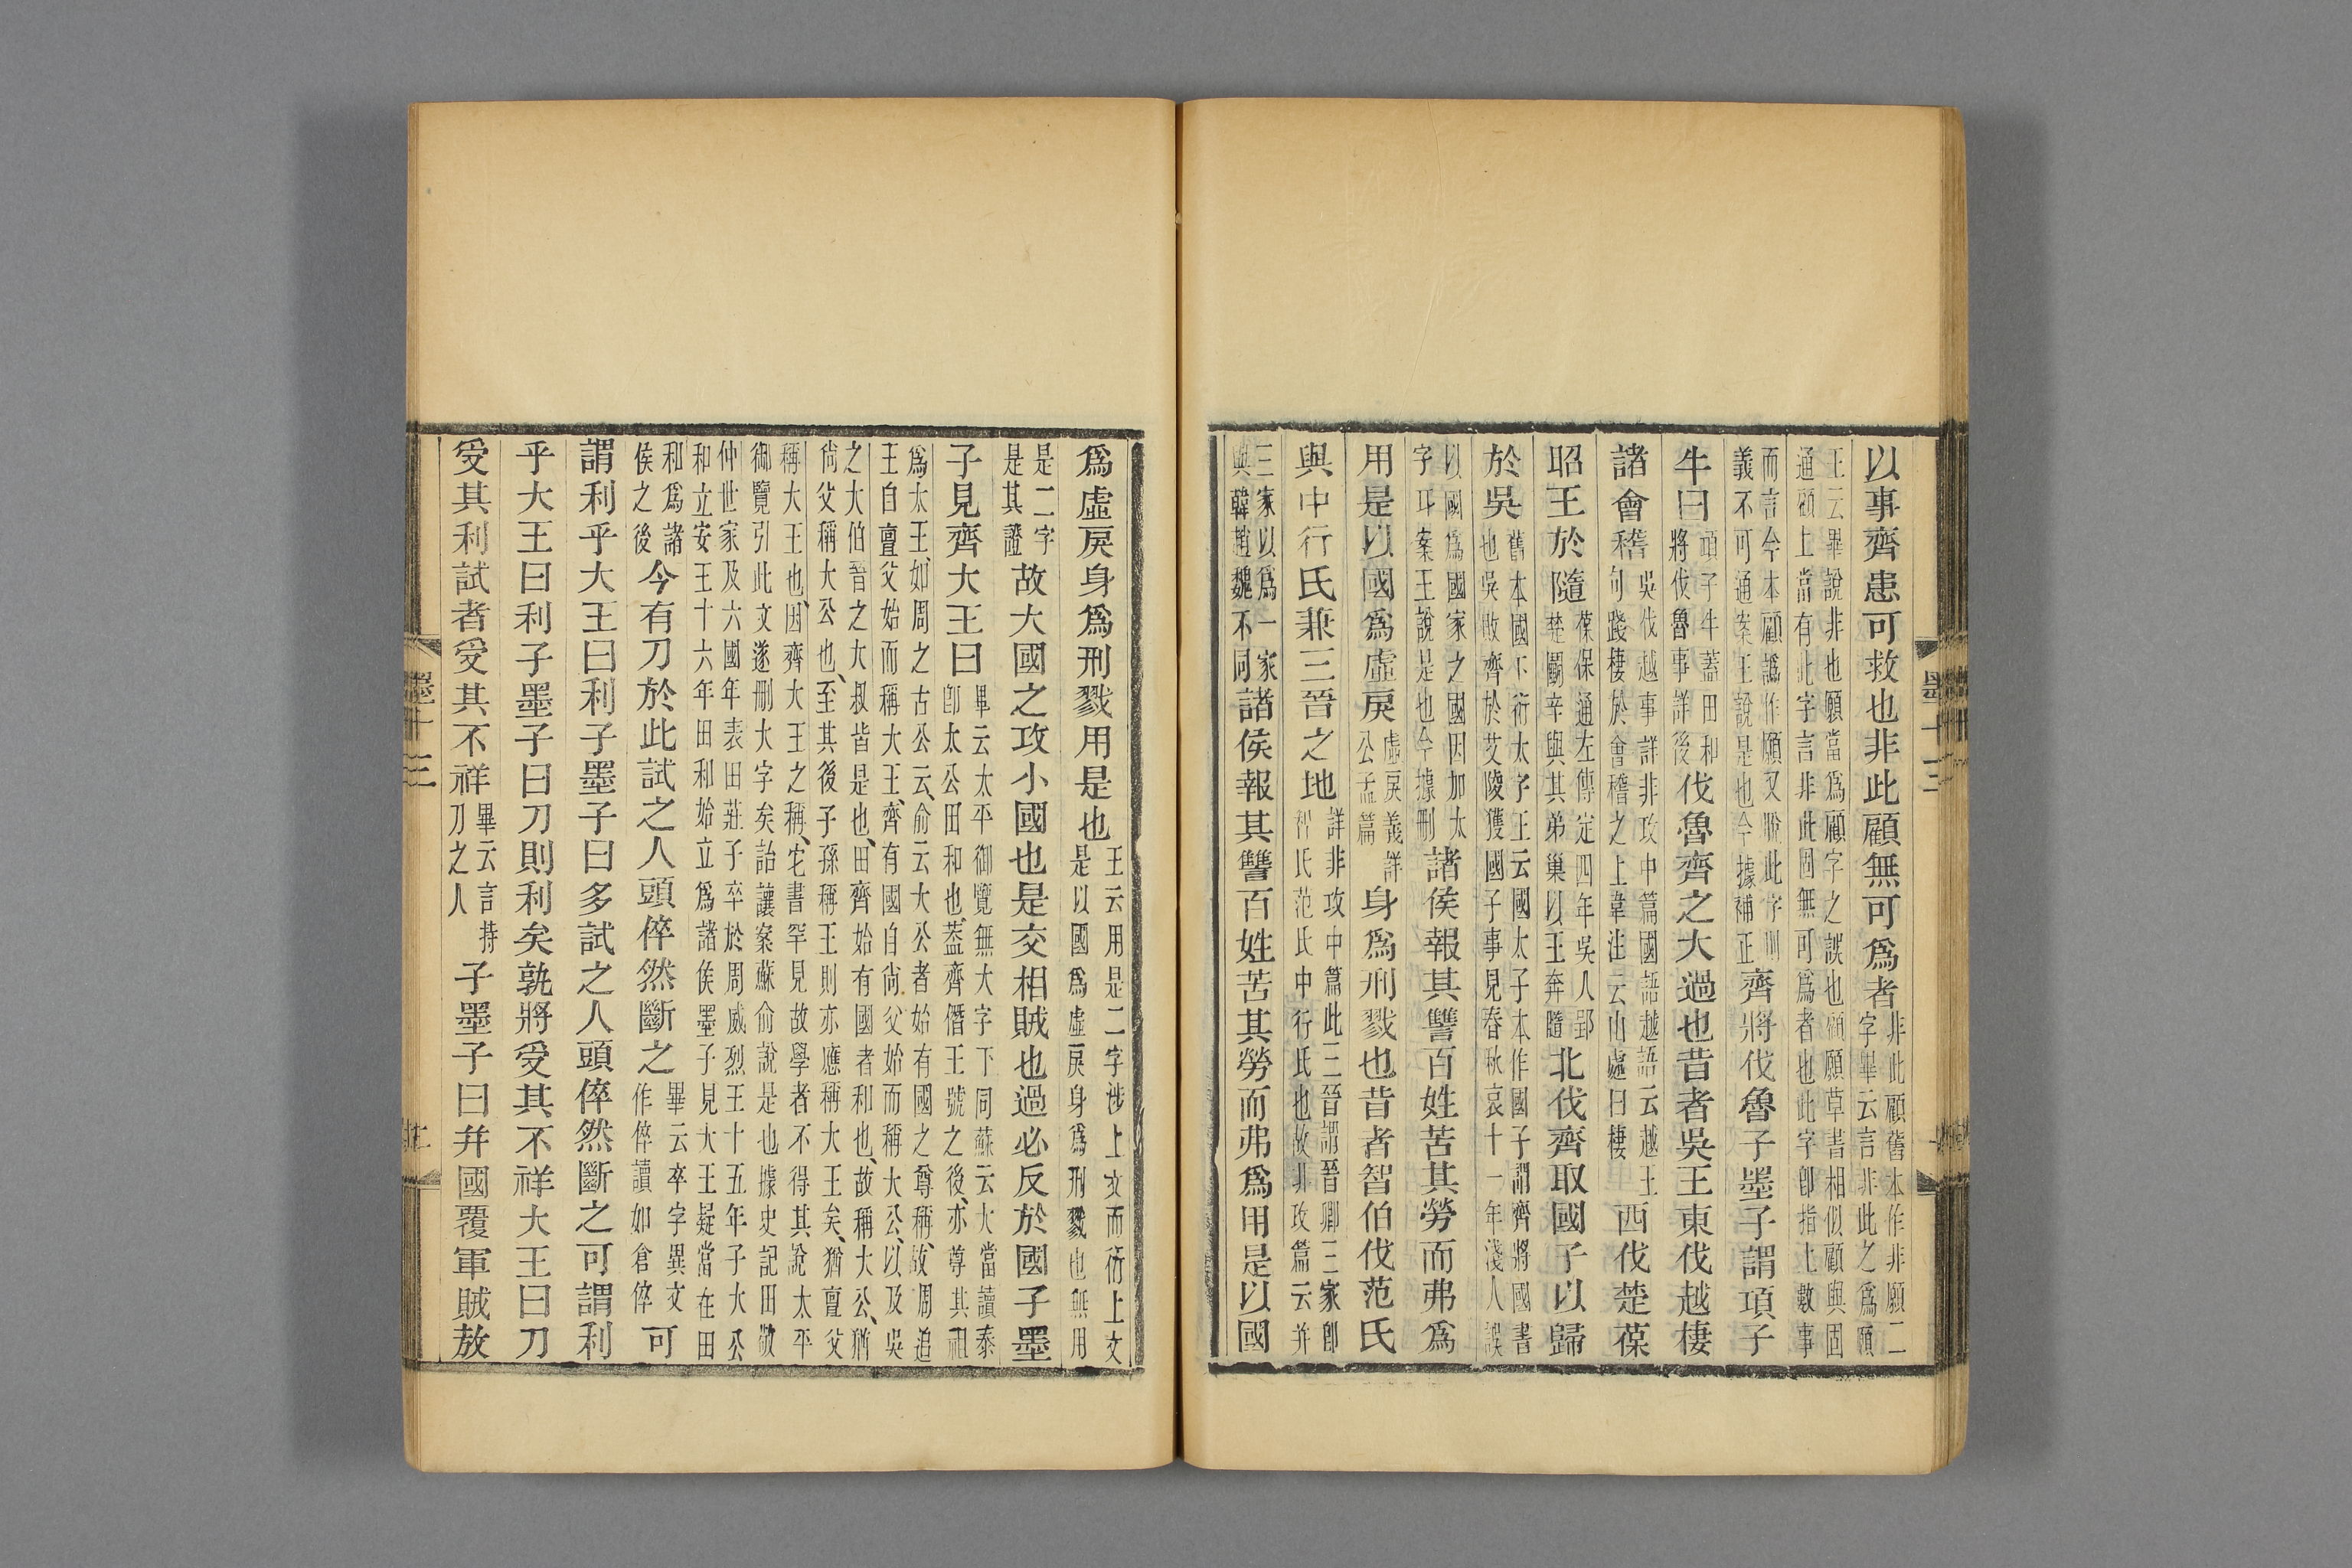 以事齊患可救也非此顧無可爲者非此顧舊本作非願二字畢云言非此之爲願
王云畢說非也願當爲顧字之誤也顧願草書相似顧與固通顧上當有此字言非此固無可爲者也此字卽指上數事
而言今本顧譌作願又脫此字則義不可通案王說是也今據補正齊將伐魯子墨子謂項子
牛曰項子牛蓋田和將伐魯事詳後伐魯齊之大過也昔者吳王東伐越棲
諸會稽吳伐越事詳非攻中篇國語越語云越王句踐棲於會稽之上韋注云山處曰棲西伐楚葆
昭王於隨葆保通左傳定四年吳人郢楚鬭辛與其弟巢以王奔隨北伐齊取國子以歸
於吳舊本國下衍太字王云國太子本作國子謂齊將國書也吳敗齊於艾陵獲國子事見春秋哀十一年淺人誤
以國爲國家之國因加太字耳案王說是也今據刪諸侯報其讐百姓苦其勞而弗爲
用是以國爲虛戾虛戾義詳公孟篇身爲刑戮也昔者智伯伐范氏
與中行氏兼三晉之地詳非攻中篇此三晉謂晉卿三家卽智氏范氏中行氏也故非攻篇云并
三家以爲一家與韓趙魏不同諸侯報其讐百姓苦其勞而弗爲用是以國
墨十三
爲虛戾身爲刑戮用是也王云用是二字涉上文而衍上文是以國爲虛戾身爲刑戮也無用
是二字是其證故大國之攻小國也是交相賊也過必反於國子墨
子見齊大王曰畢云太平御覽無大字下同蘇云大當讀泰卽太公田和也蓋齊僭王號之後亦尊其祖
爲太王如周之古公云俞云大公者始有國之尊稱故周追王自亶父始而稱大王齊有國自尚父始而稱大公以及吳
之大伯晉之大叔皆是也田齊始有國者和也故稱大公猶尚父稱大公也至其後子孫稱王則亦應稱大王矣猶亶父
稱大王也因齊大王之稱宅書罕見故學者不得其說太平御覽引此文遂刪大字矣詒讓案蘇俞說是也據史記田敬
仲世家及六國年表田莊子卒於周威烈王十五年子大公和立安王十六年田和始立爲諸侯墨子見大王疑當在田
和爲諸侯之後今有刀於此試之人頭倅然斷之畢云卒字異文作倅讀如倉倅可
謂利乎大王曰利子墨子曰多試之人頭倅然斷之可謂利
乎大王曰利子墨子曰刀則利矣孰將受其不祥大王曰刀
受其利試者受其不祥畢云言持刀之人子墨子曰并國覆軍賊敖
墨十三